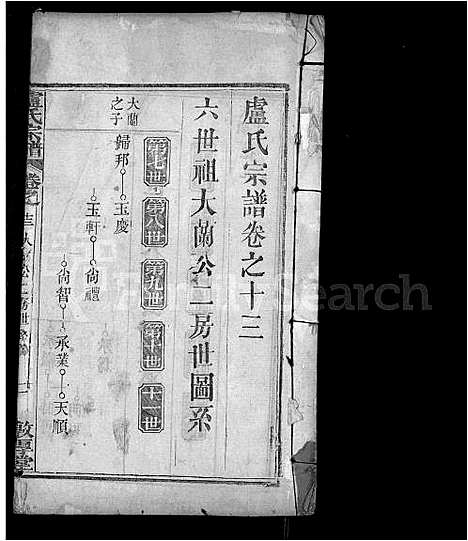 盧氏宗譜卷之十三
六世祖大蘭公二房世圖系
第七世
第八世
第九世
第十世
十一世
大蘭之子
歸邦
玉慶
玉軒
尚禮
尚智
承業
天順
盧氏宗譜
卷之十三
敦厚堂
FamilySearch